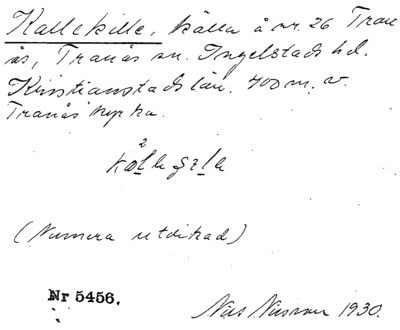 Kallekille, källa å nr. 26 Tran
ås, Tranås sn. Ingelstads hd.
Kristianstads län. 700 m. v.
Tranås kyrka.
(Numera utdikad)
Nr 5456.
Nils Nilsson 1930.